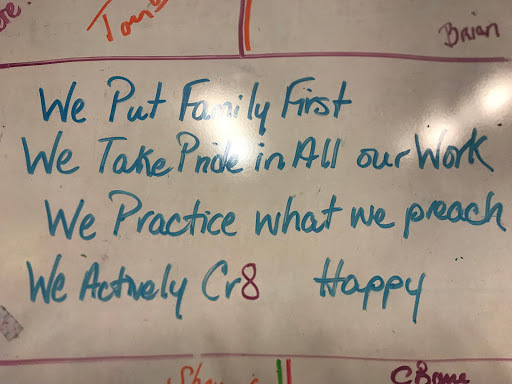 Brian
We Put Family First
We Take Pride in All our Work
We Practice what we preach
We Actively Cr8 Happy